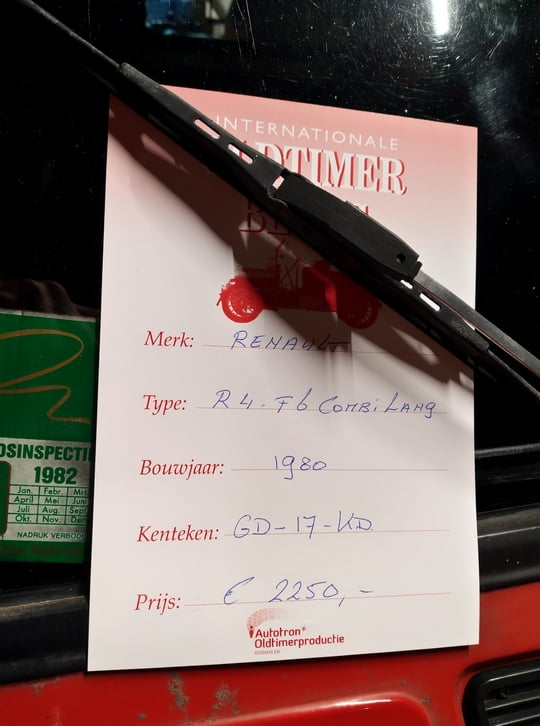 INTERNATIONALE
OLDTIMER
Merk: RENAULT
Type: R4. F6 COMBI LANG
Bouwjaar: 1980
Kenteken: GD-17-KD
Prijs: € 2250,-
Autotron®
Oldtimerproductie
ROSMALEN
OSINSPECTI
1982
Jan. Febr. Mrt
April Mei Jun
Juli Aug. Sept
Okt. Nov. De
NADRUK VERBOD